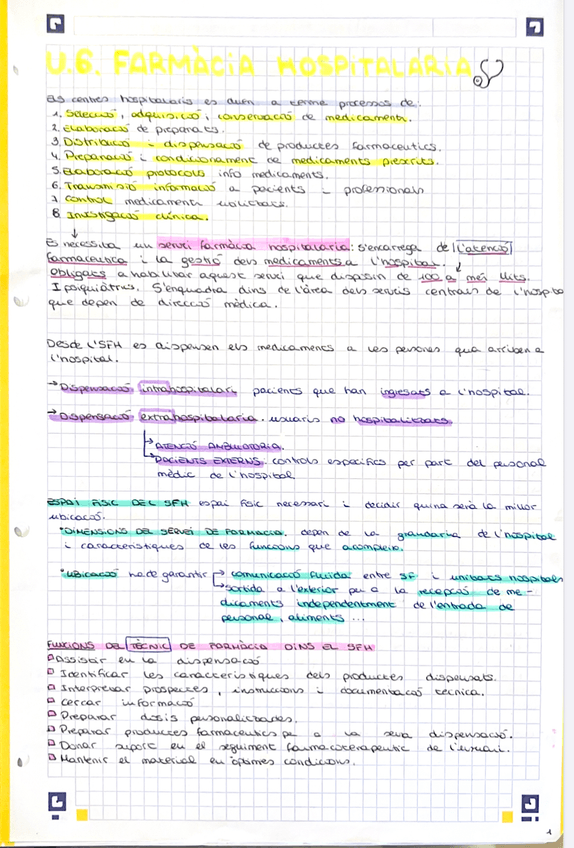 U.6. FARMÀCIA HOSPITALARIA
Els centres hospitalaris es duen a terme processos de:
1. Selecció, adquisició, conservació de medicaments.
2. Elaboració de preparats.
3. Distribució i dispensació de productes farmaceutics.
4. Preparació i condicionament de medicaments prescrits.
5. Elaboració protocols info medicaments.
6. Transmisió informació a pacients i professionals
7. Control medicaments utilitzats.
8. Investigació clínica.
Es necessita un servei farmàcia hospitalaria: s'encarrega de l'atenció
farmaceutica i la gestió dels medicaments a l'hospital.
Obligats a habilitar aquest servei que disposin de 100 o més llits.
I psiquiàtrics. S'enquadra dins de l'àrea dels serveis centrals de l'hospital
que depen de direcció mèdica.
Desde l'SFH es dispensen els medicaments a les persones que arriben a
l'hospital.
→ Dispensació intrahospitalari pacients que han ingresats a l'hospital.
→ Dispensació extrahospitalaria. usuaris no hospitalitzats
→ ATENCIÓ AMBULATORIA.
→ PACIENTS EXTERNS. controls especifics per part del personal
mèdic de l'hospital
ESPAI FISIC DEL SFH espai fisic necessari i decidir quina serà la millor
ubicació.
· DIMENSIONS DEL SERVEI DE FARMACIA. depen de la grandaria de l'hospital
i característiques de les funcions que acompleix.
· Ubicació ha de garantir → comunicació fluida entre SF i unitats hospitals
→ sortida a l'exterior per a la recepció de me-
dicaments independentment de l'entrada de
personal, aliments ...
FUNCIONS DEL TÈCNIC DE FARMÀCIA DINS EL SFH
Assistir en la dispensació
Identificar les característiques dels productes dispensats.
Interpretar prospectes, instruccions i documentació tècnica.
Cercar informació
Preparar dosis personalitzades.
Preparar productes farmaceutics pe a la seva dispensació.
Donar suport en el seguiment farmacoterapeutic de l'usuari.
Mantenir el material en òptimes condicions.
1